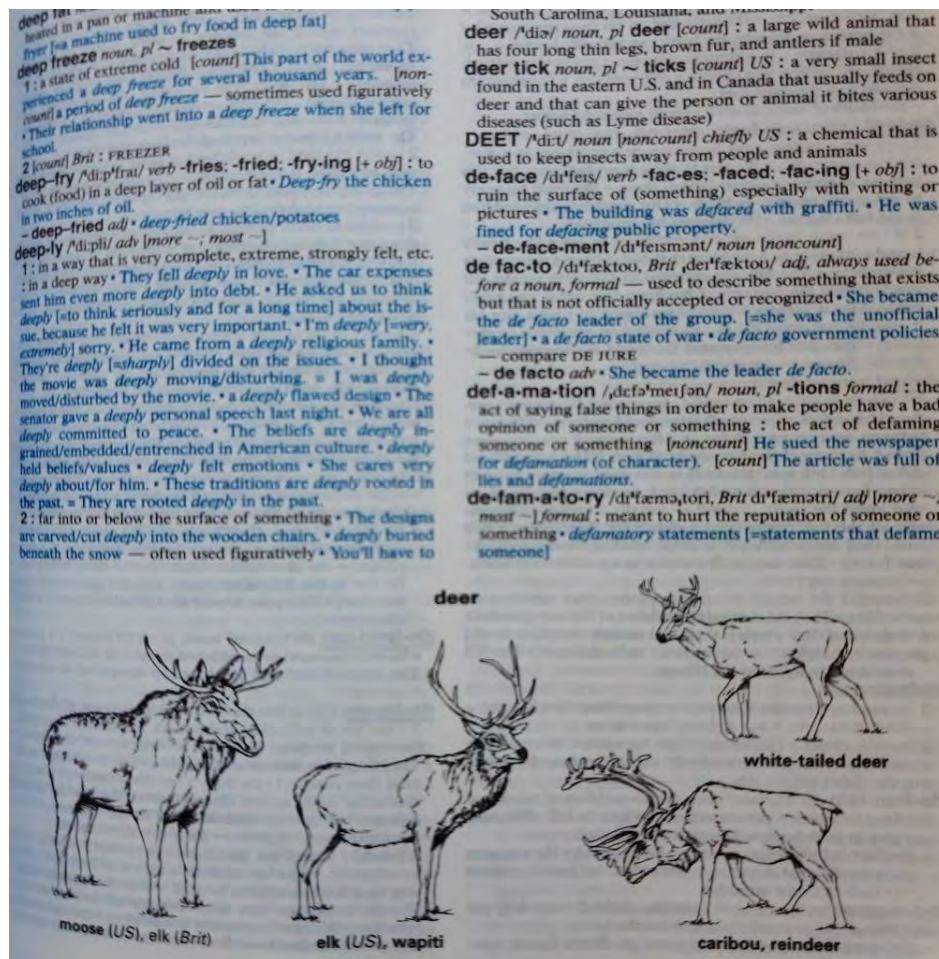 deep fat
heated in a pan or machine and used to
fryer [=a machine used to fry food in deep fat]
deep freeze noun, pl ~ freezes
1 : a state of extreme cold [count] This part of the world ex-
perienced a deep freeze for several thousand years. [non-
count] a period of deep freeze — sometimes used figuratively
• Their relationship went into a deep freeze when she left for
school.
2 [count] Brit : FREEZER
deep–fry /ˈdiːpˈfraɪ/ verb -fries; -fried; -fry·ing [+ obj] : to
cook (food) in a deep layer of oil or fat • Deep-fry the chicken
in two inches of oil.
– deep–fried adj • deep-fried chicken/potatoes
deep·ly /ˈdiːpli/ adv [more ~; most ~]
1 : in a way that is very complete, extreme, strongly felt, etc.
: in a deep way • They fell deeply in love. • The car expenses
sent him even more deeply into debt. • He asked us to think
deeply [=to think seriously and for a long time] about the is-
sue, because he felt it was very important. • I'm deeply [=very,
extremely] sorry. • He came from a deeply religious family. •
They're deeply [=sharply] divided on the issues. • I thought
the movie was deeply moving/disturbing. = I was deeply
moved/disturbed by the movie. • a deeply flawed design • The
senator gave a deeply personal speech last night. • We are all
deeply committed to peace. • The beliefs are deeply in-
grained/embedded/entrenched in American culture. • deeply
held beliefs/values • deeply felt emotions • She cares very
deeply about/for him. • These traditions are deeply rooted in
the past. = They are rooted deeply in the past.
2 : far into or below the surface of something • The designs
are carved/cut deeply into the wooden chairs. • deeply buried
beneath the snow — often used figuratively • You'll have to
South Carolina, Louisiana, and Mississippi
deer /ˈdiɚ/ noun, pl deer [count] : a large wild animal that
has four long thin legs, brown fur, and antlers if male
deer tick noun, pl ~ ticks [count] US : a very small insect
found in the eastern U.S. and in Canada that usually feeds on
deer and that can give the person or animal it bites various
diseases (such as Lyme disease)
DEET /ˈdiːt/ noun [noncount] chiefly US : a chemical that is
used to keep insects away from people and animals
de·face /dɪˈfeɪs/ verb -fac·es; -faced; -fac·ing [+ obj] : to
ruin the surface of (something) especially with writing or
pictures • The building was defaced with graffiti. • He was
fined for defacing public property.
– de·face·ment /dɪˈfeɪsmənt/ noun [noncount]
de fac·to /dɪˈfæktoʊ, Brit ˌdeɪˈfæktəʊ/ adj, always used be-
fore a noun, formal — used to describe something that exists
but that is not officially accepted or recognized • She became
the de facto leader of the group. [=she was the unofficial
leader] • a de facto state of war • de facto government policies
— compare DE JURE
– de facto adv • She became the leader de facto.
def·a·ma·tion /ˌdɛfəˈmeɪʃən/ noun, pl -tions formal : the
act of saying false things in order to make people have a bad
opinion of someone or something : the act of defaming
someone or something [noncount] He sued the newspaper
for defamation (of character). [count] The article was full of
lies and defamations.
de·fam·a·to·ry /dɪˈfæməˌtori, Brit dɪˈfæmətri/ adj [more ~;
most ~] formal : meant to hurt the reputation of someone or
something • defamatory statements [=statements that defame
someone]
deer
white-tailed deer
moose (US), elk (Brit)
elk (US), wapiti
caribou, reindeer